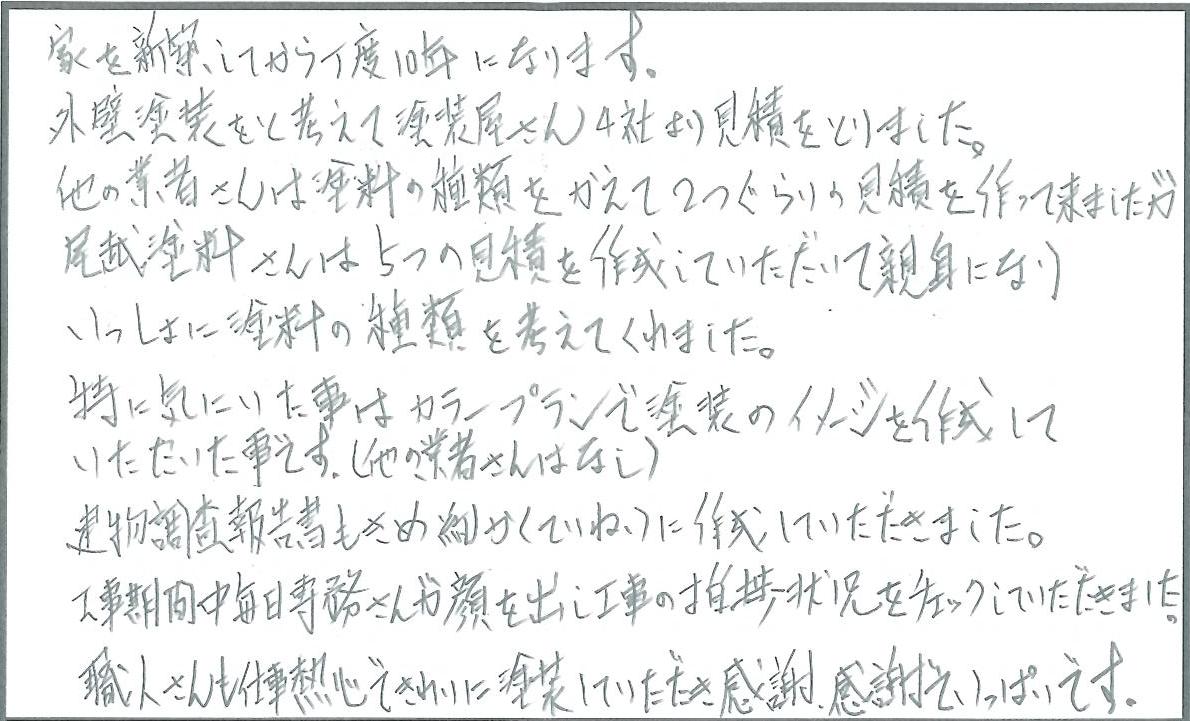 家を新築してから丁度10年になります。
外壁塗装をと考えて塗装屋さん4社より見積をとりました。
他の業者さんは塗料の種類をかえて2つぐらいの見積を作って来ましたが
尾越塗料さんは5つの見積を作成していただいて親身になり
いっしょに塗料の種類を考えてくれました。
特に気にいた事はカラープランで塗装のイメージを作成して
いただいた事です。(他の業者さんはなし)
建物調査報告書もきめ細かくていねいに作成していただきました。
工事期間中毎日専務さんが顔を出し工事の進捗状況をチェックしていただきました。
職人さんも仕事熱心できれいに塗装していただき感謝、感謝でいっぱいです。